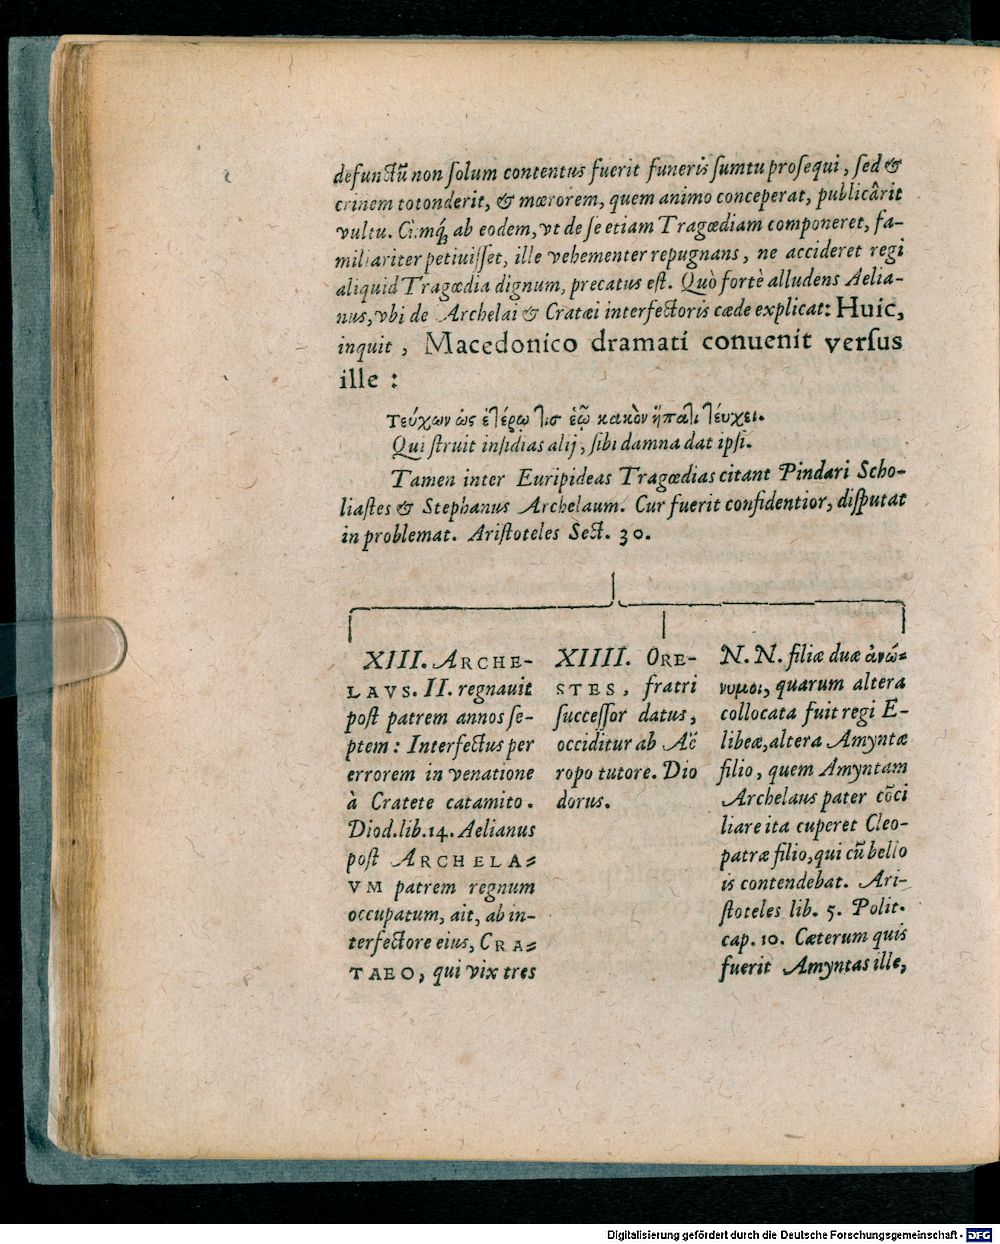 defunctũ non ſolum contentus fuerit funeris ſumtu proſequi, ſed &
crinem totonderit, & mœrorem, quem animo conceperat, publicârit
vultu. Cùmq́ꝫ ab eodem, vt de ſe etiam Tragœdiam componeret, fa-
miliariter petiuiſſet, ille vehementer repugnans, ne accideret regi
aliquid Tragœdia dignum, precatus eſt. Quò fortè alludens Aelia-
nus, vbi de Archelai & Cratæi interfectoris cæde explicat: Huic,
inquit, Macedonico dramati conuenit verſus
ille :
τεύχων ὡς ἑτέρῳ τισ ἑῷ κακὸν ἥπατι τέυχει.
Qui ſtruit inſidias alij, ſibi damna dat ipſi.
Tamen inter Euripideas Tragœdias citant Pindari Scho-
liaſtes & Stephanus Archelaum. Cur fuerit confidentior, diſputat
in problemat. Ariſtoteles Sect. 30.
XIII. ARCHE-
LAVS. II. regnauit
poſt patrem annos ſe-
ptem : Interfectus per
errorem in venatione
à Cratete catamito.
Diod. lib. 14. Aelianus
poſt ARCHELA-
VM patrem regnum
occupatum, ait, ab in-
terfectore eius, CRA-
TAEO, qui vix tres
XIIII. ORE-
STES, fratri
ſucceſſor datus,
occiditur ab Aë
ropo tutore. Dio
dorus.
N. N. filiæ duæ ἀνώ-
νυμοι, quarum altera
collocata fuit regi E-
libeæ, altera Amyntæ
filio, quem Amyntam
Archelaus pater cõci
liare ita cuperet Cleo-
patræ filio, qui cũ bello
is contendebat. Ari-
ſtoteles lib. 5. Polit.
cap. 10. Cæterum quis
fuerit Amyntas ille,
Digitalisierung gefördert durch die Deutsche Forschungsgemeinschaft - DFG